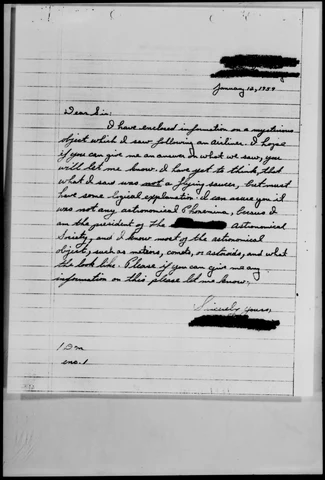 January 12, 1959
Dear Sir:
I have enclosed information on a mysterious
object which I saw following an airliner. I hope
if you can give me an answer on what we saw, you
will let me know. I have got to think, that
what I saw was not a flying saucer, but must
have some logical explanation. I can assure you it
was not any astronomical Phenomina, because I
am the president of the Astronomical
Society, and I know most of the astronomical
object, such as meteors, comets, or asteroids, and what
they look like. Please if you can give me any
information on this please let me know.
Sincerely yours,
enc. 1